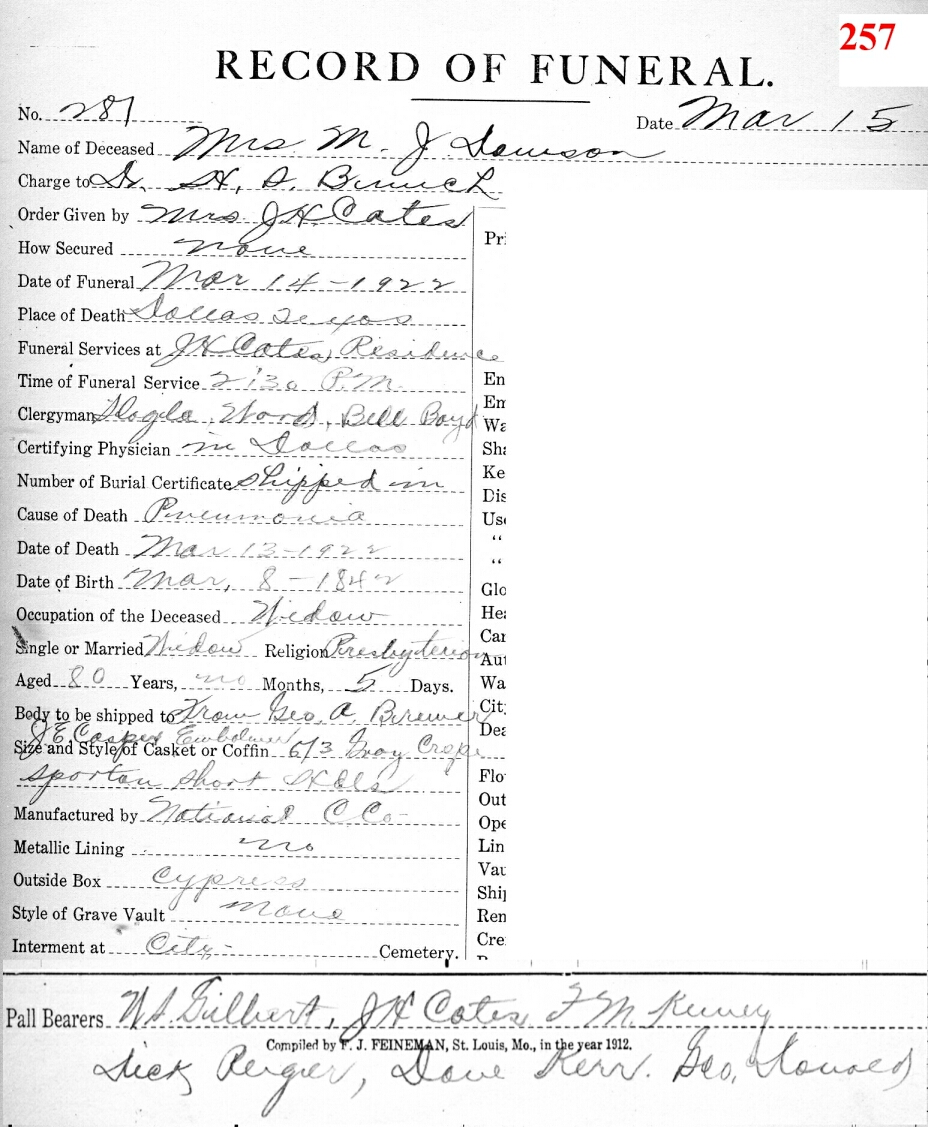 257
RECORD OF FUNERAL.
No. 281
Date Mar 15
Name of Deceased Mrs. M. J. Dawson
Charge to Dr. H, A.
Order Given by Mrs J.H. Cates
How Secured none
Pri
Date of Funeral Mar 14-1922
Place of Death Dallas Texas
Funeral Services at J H Cates, Residence
Time of Funeral Service 2:30 P.M.
En
Clergyman Wood, Bell Boyd
Em
Wa
Certifying Physician in Dallas
Sha
Number of Burial Certificate Shipped in
Ke
Dis
Cause of Death Pneumonia
Use
Date of Death Mar 13-1922
“
“
Date of Birth Mar, 8-1842
Glo
Occupation of the Deceased Widow
Hea
Car
Single or Married Widow Religion Presbyterian
Aut
Aged 80 Years, no Months, 5 Days.
Wa
City
Body to be shipped to From Geo. A. Brewer
Dea
J E Embalmer
Size and Style of Casket or Coffin 6/3 Gray Crape
short
Flo
Out
Manufactured by National C Co-
Ope
Metallic Lining no
Lin
Vau
Outside Box Cypress
Ship
Style of Grave Vault none
Ren
Interment at City- Cemetery.
Cre
Pall Bearers W.S. Gilbert, J H Cates F M.
Compiled by F. J. FEINEMAN, St. Louis, Mo., in the year 1912.
Dick, Dave Kerr. Geo,